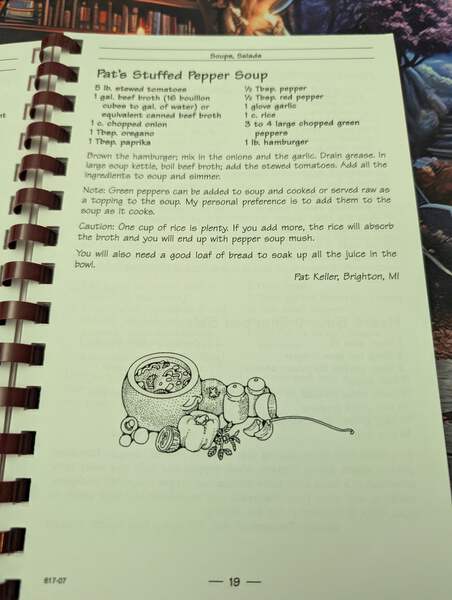 Soups, Salads
Pat's Stuffed Pepper Soup
5 lb. stewed tomatoes
1 gal. beef broth (16 bouillon
cubes to gal. of water) or
equivalent canned beef broth
1 c. chopped onion
1 Tbsp. oregano
1 Tbsp. paprika
½ Tbsp. pepper
½ Tbsp. red pepper
1 glove garlic
1 c. rice
3 to 4 large chopped green
peppers
1 lb. hamburger
Brown the hamburger; mix in the onions and the garlic. Drain grease. In
large soup kettle, boil beef broth; add the stewed tomatoes. Add all the
ingredients to soup and simmer.
Note: Green peppers can be added to soup and cooked or served raw as
a topping to the soup. My personal preference is to add them to the
soup as it cooks.
Caution: One cup of rice is plenty. If you add more, the rice will absorb
the broth and you will end up with pepper soup mush.
You will also need a good loaf of bread to soak up all the juice in the
bowl.
Pat Keller, Brighton, MI
617-07
— 19 —